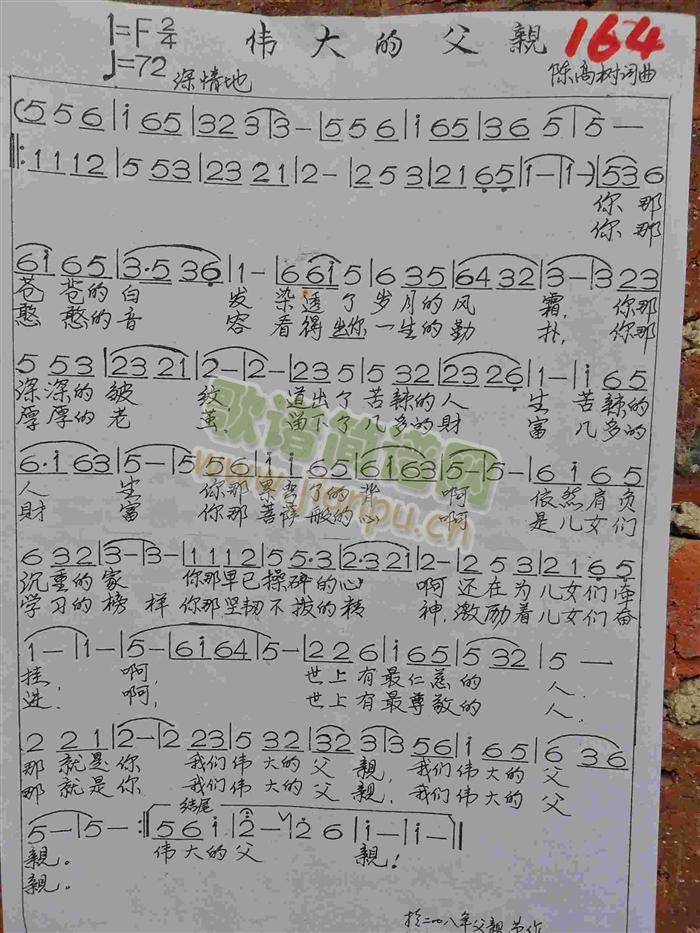 1=F 2/4 伟大的父親 164
♩=72 深情地 陈高树词曲
(5 5 6 | i 6 5 | 3 2 3 | 3 - | 5 5 6 | i 6 5 | 3 6 5 | 5 —
‖: 1 1 1 2 | 5 5 3 | 2 3 2 1 | 2 - | 2 5 3 | 2 1 6 5 | 1 - | 1 -) | 5 3 6
你那
你那
6 i 6 5 | 3·5 3 6 | 1 - | 6 6 i 5 | 6 3 5 | 6 4 3 2 | 3 - | 3 2 3
苍苍的白 发 染透了岁月的风 霜,你那
憨憨的音 容 看得出你一生的勤 扑,你那
5 5 3 | 2 3 2 1 | 2 - | 2 - | 2 3 5 | 5 3 2 | 2 3 2 6 | 1 - | i 6 5
深深的皱 纹, 道出了苦辣的人 生 苦辣的
厚厚的老 茧, 留下了几多的財 富 几多的
6·i 6 3 | 5 - | 5 5 6 | i i 6 5 | 6 i 6 3 | 5 - | 5 - | 6 i 6 5
人 生 你那累弯了的背 啊 依然肩负
財 富 你那菩萨般的心 啊 是儿女们
6 3 2 | 3 - | 3 - | 1 1 1 2 | 5 5·3 | 2·3 2 1 | 2 - | 2 5 3 | 2 1 6 5
沉重的家 你那早已操碎的心 啊还在为儿女们牵
学习的榜样你那坚韧不拔的精 神,激励着儿女们奋
1 - | 1 - | 5 - | 6 i 6 4 | 5 - | 2 2 6 | i 6 5 | 5 3 2 | 5 —
挂, 啊, 世上有最仁慈的 人.
进. 啊, 世上有最尊敬的 人.
2 2 1 | 2 - | 2 2 3 | 5 3 2 | 3 2 3 | 3 5 6 | i 6 5 | 6 3 6
那就是你 我们伟大的父 親,我们伟大的父
那就是你 我们伟大的父 親,我们伟大的父
结尾
5 - | 5 - :‖ 5 6 i | 2 - ∨ | 2 6 | i - | i - ‖
親. 伟大的父 親!
親.
歌谱简谱网
www.jianpu.cn
于二〇〇八年父親节作